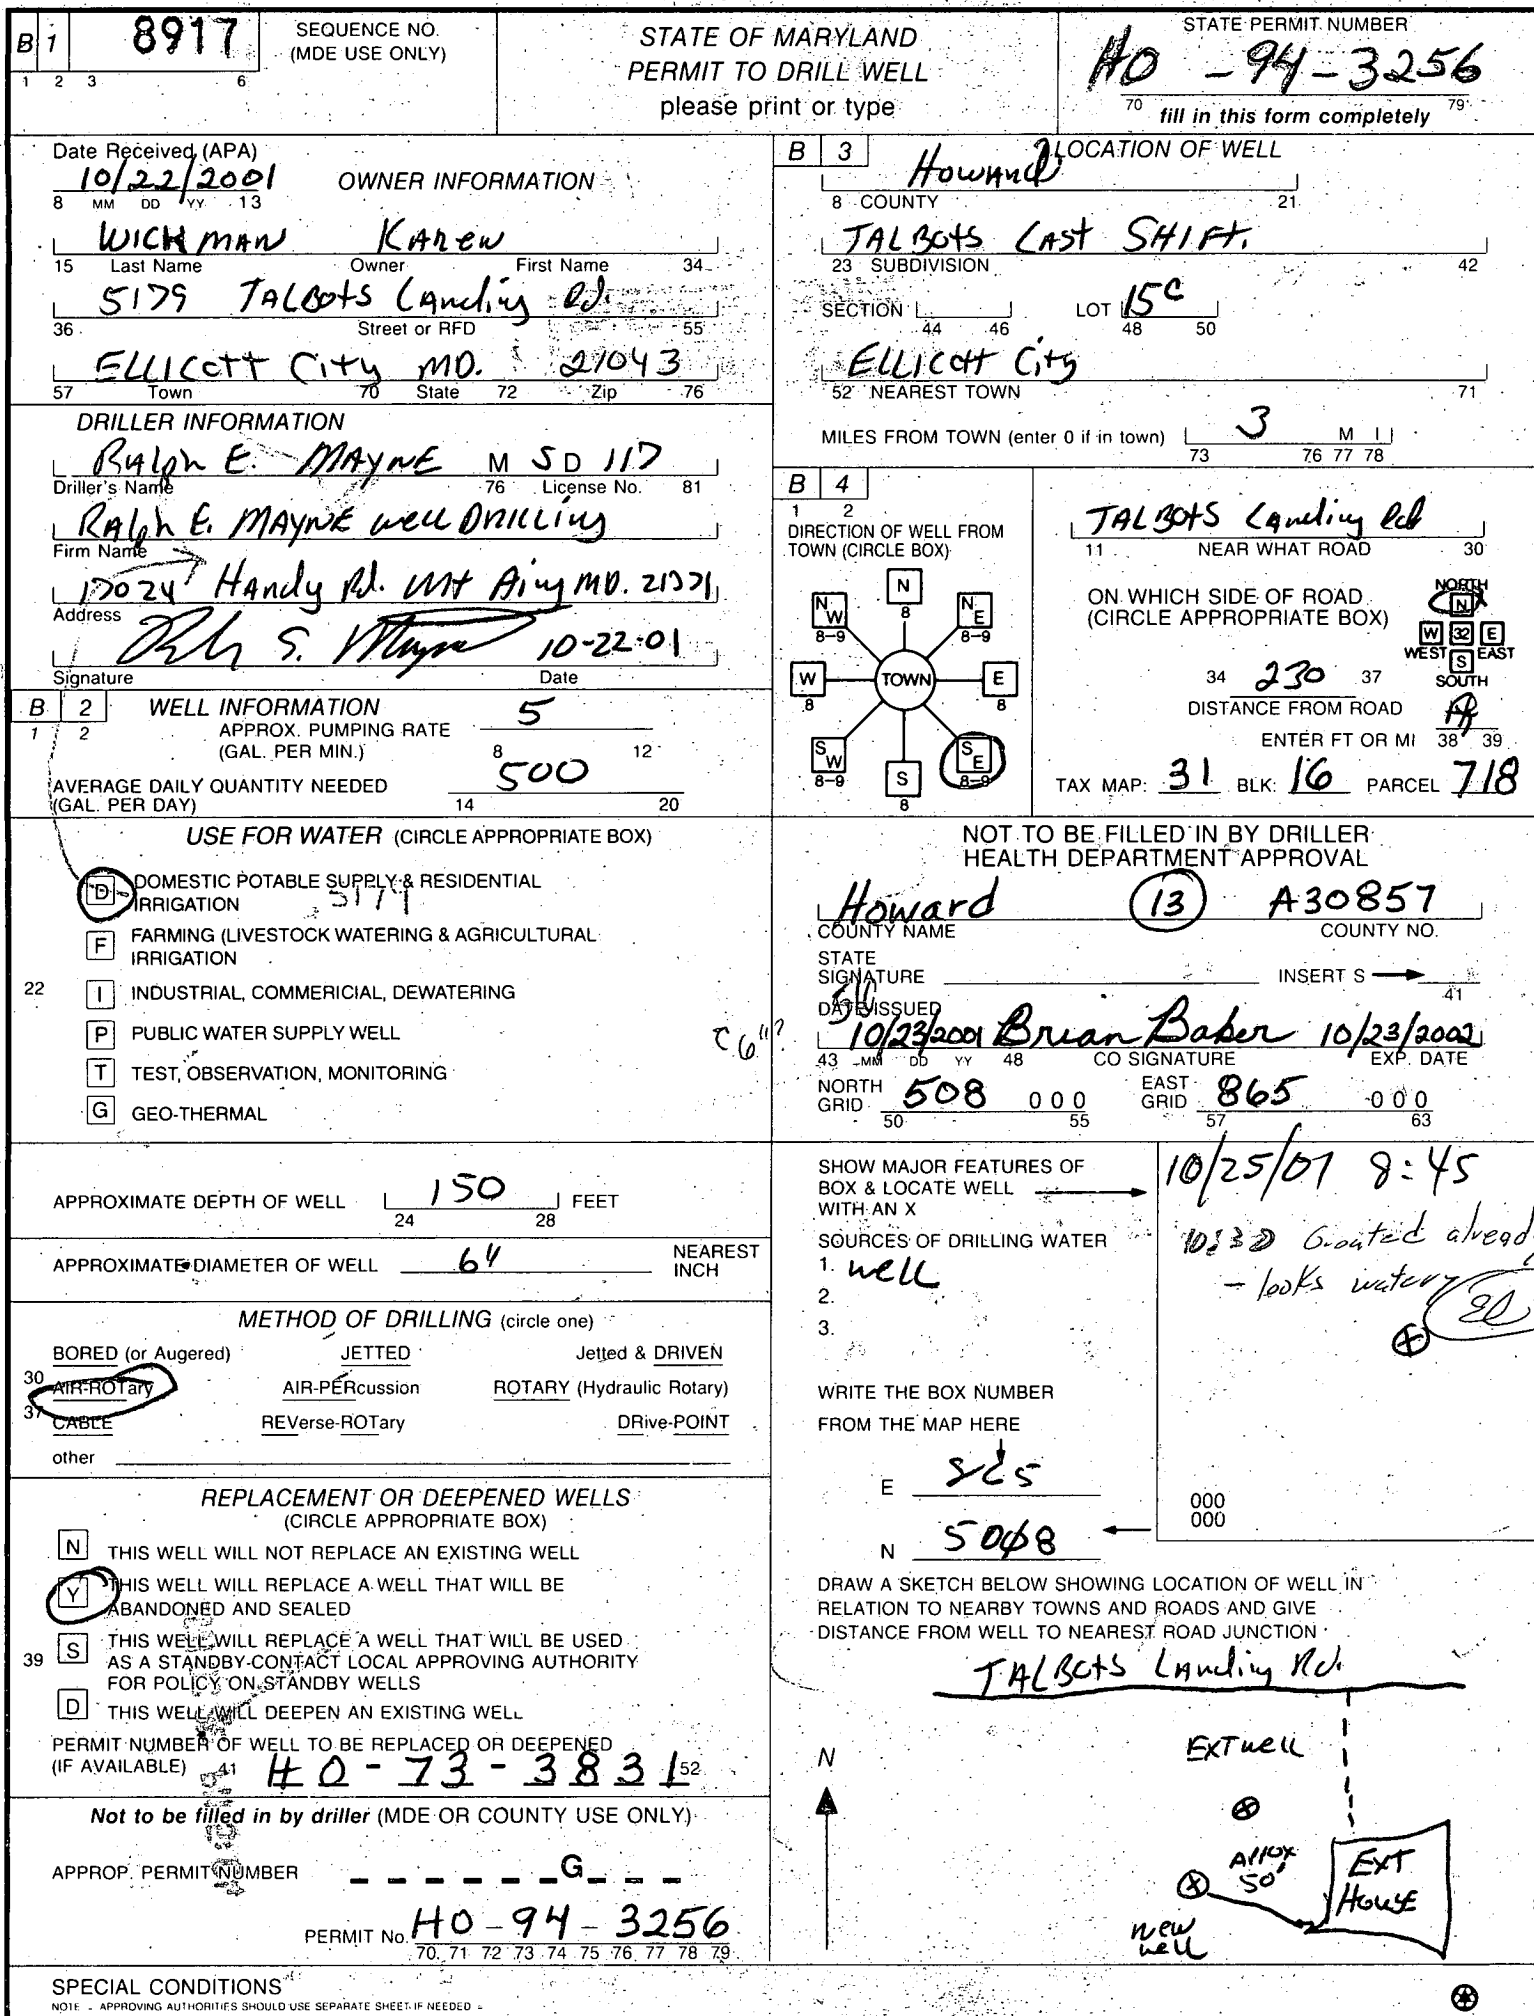 B 1 8917 SEQUENCE NO. (MDE USE ONLY)
1 2 3 6
STATE OF MARYLAND
PERMIT TO DRILL WELL
please print or type
STATE PERMIT NUMBER
HO - 94 - 3256
70 79
fill in this form completely
Date Received (APA)
10/22/2001
8 MM DD YY 13
OWNER INFORMATION
WICHMAN KAREN
15 Last Name Owner First Name 34
5179 TALBOTS Landing Rd.
36 Street or RFD 55
ELLICOTT City MD. 21043
57 Town 70 State 72 Zip 76
DRILLER INFORMATION
RALph E. MAYNE M S D 117
Driller's Name 76 License No. 81
RALph E. MAYNE well DRILLing
Firm Name
17024 Handy Rd. Mt Airy MD. 21771
Address
10-22-01
Signature Date
B 2 WELL INFORMATION
1 2
APPROX. PUMPING RATE
(GAL. PER MIN.) 5
8 12
AVERAGE DAILY QUANTITY NEEDED
(GAL. PER DAY) 500
14 20
USE FOR WATER (CIRCLE APPROPRIATE BOX)
D DOMESTIC POTABLE SUPPLY & RESIDENTIAL
IRRIGATION 5179
F FARMING (LIVESTOCK WATERING & AGRICULTURAL
IRRIGATION
22 I INDUSTRIAL, COMMERICIAL, DEWATERING
P PUBLIC WATER SUPPLY WELL
T TEST, OBSERVATION, MONITORING
G GEO-THERMAL
APPROXIMATE DEPTH OF WELL 150 FEET
24 28
APPROXIMATE DIAMETER OF WELL 6" NEAREST
INCH
METHOD OF DRILLING (circle one)
BORED (or Augered) JETTED Jetted & DRIVEN
30 AIR-ROTary AIR-PERcussion ROTARY (Hydraulic Rotary)
37 CABLE REVerse-ROTary DRive-POINT
other
REPLACEMENT OR DEEPENED WELLS
(CIRCLE APPROPRIATE BOX)
N THIS WELL WILL NOT REPLACE AN EXISTING WELL
Y THIS WELL WILL REPLACE A WELL THAT WILL BE
ABANDONED AND SEALED
39 S THIS WELL WILL REPLACE A WELL THAT WILL BE USED
AS A STANDBY-CONTACT LOCAL APPROVING AUTHORITY
FOR POLICY ON STANDBY WELLS
D THIS WELL WILL DEEPEN AN EXISTING WELL
PERMIT NUMBER OF WELL TO BE REPLACED OR DEEPENED
(IF AVAILABLE) 41 HO - 73 - 3831 52
Not to be filled in by driller (MDE OR COUNTY USE ONLY)
APPROP. PERMIT NUMBER G
PERMIT No. HO - 94 - 3256
70 71 72 73 74 75 76 77 78 79
SPECIAL CONDITIONS
NOTE - APPROVING AUTHORITIES SHOULD USE SEPARATE SHEET IF NEEDED -
B 3 LOCATION OF WELL
Howard
8 COUNTY 21
TALBOTS LAST SHIFT.
23 SUBDIVISION 42
SECTION LOT 15C
44 46 48 50
ELLICOTT City
52 NEAREST TOWN 71
MILES FROM TOWN (enter 0 if in town) 3 M I
73 76 77 78
B 4
1 2
DIRECTION OF WELL FROM
TOWN (CIRCLE BOX)
N
8
NW NE
8-9 8-9
W TOWN E
8 8
SW SE
8-9 8-9
S
8
TALBOTS Landing Rd
11 NEAR WHAT ROAD 30
ON WHICH SIDE OF ROAD
(CIRCLE APPROPRIATE BOX)
NORTH
N
W 32 E
WEST EAST
S
SOUTH
34 230 37
DISTANCE FROM ROAD
ENTER FT OR MI ft
38 39
TAX MAP: 31 BLK: 16 PARCEL 718
NOT TO BE FILLED IN BY DRILLER
HEALTH DEPARTMENT APPROVAL
Howard 13 A30857
COUNTY NAME COUNTY NO.
STATE
SIGNATURE INSERT S
41
DATE ISSUED
10/23/2001 Brian Baker 10/23/2002
43 MM DD YY 48 CO SIGNATURE EXP. DATE
NORTH GRID 508 000 EAST GRID 865 000
50 55 57 63
6"?
SHOW MAJOR FEATURES OF
BOX & LOCATE WELL
WITH AN X
10/25/01 8:45
10:30 Grouted alread
- looks watery
SOURCES OF DRILLING WATER
1. well
2.
3.
WRITE THE BOX NUMBER
FROM THE MAP HERE
E 865
N 508
000
000
DRAW A SKETCH BELOW SHOWING LOCATION OF WELL IN
RELATION TO NEARBY TOWNS AND ROADS AND GIVE
DISTANCE FROM WELL TO NEAREST ROAD JUNCTION
TALBOTS Landing Rd.
EXT well
N
Approx
50'
EXT
House
new
well